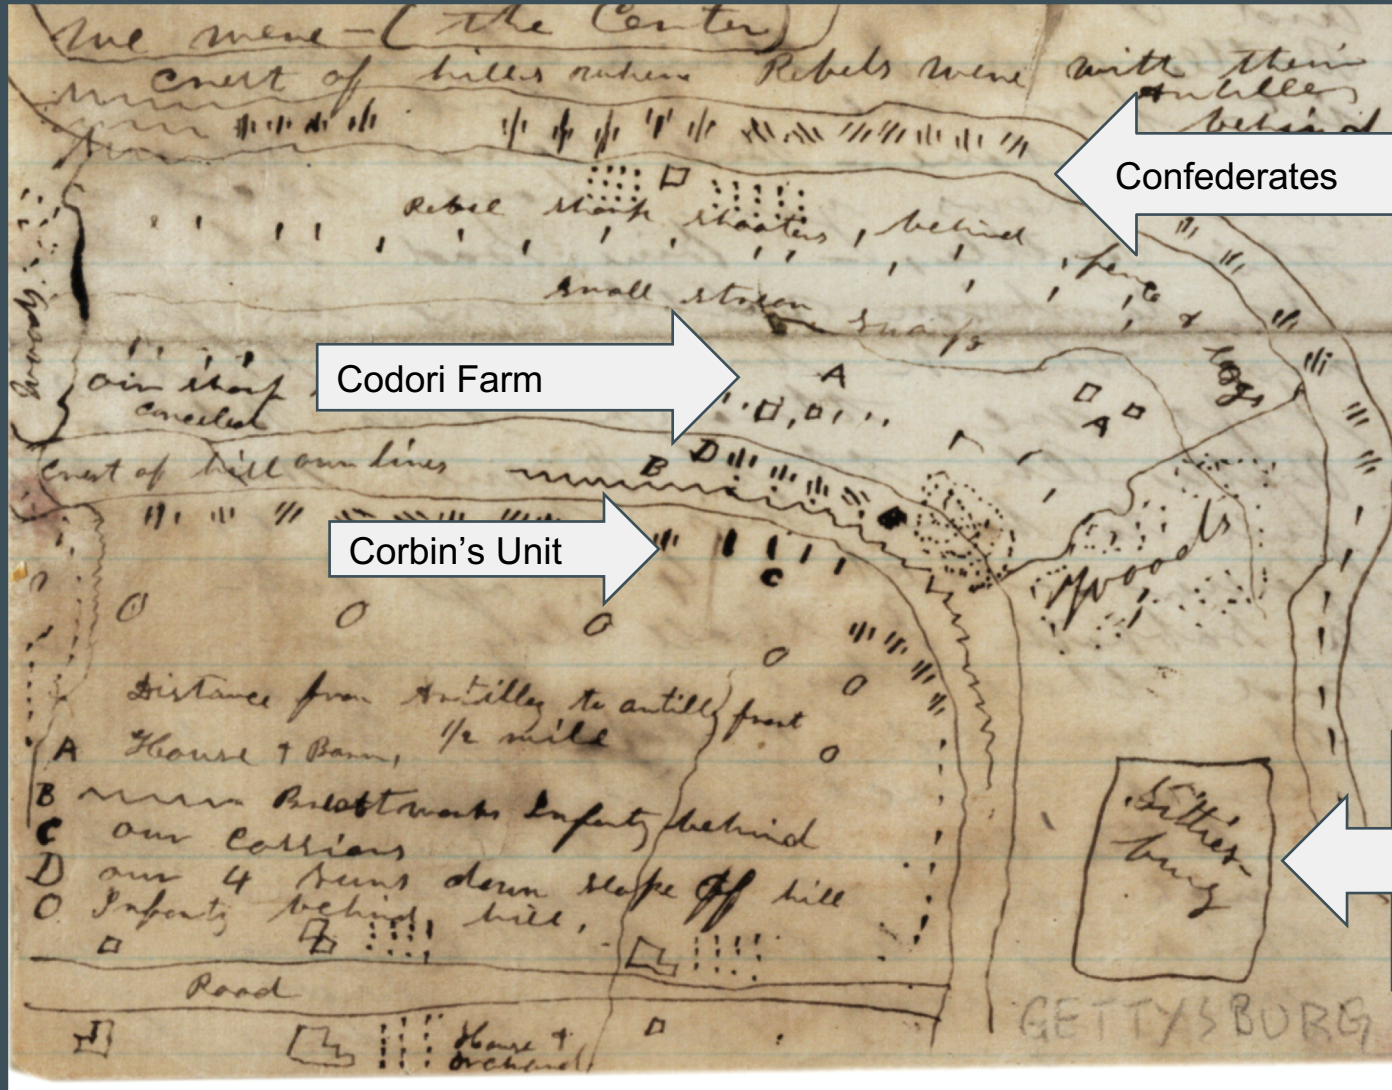 we were - (the Center)
Crest of hills where Rebels were with their
Artillery
behind
Confederates
Rebel sharp shooters, behind
fence
& logs
small stream
swamp
Codori Farm
A
our sharp
concealed
A
Crest of hill our lines
B
D
Corbin's Unit
C
woods
Distance from Artilley to artilly front
1/2 mile
A House & Barn,
B Breastworks Infanty behind
C our Cassions
D our 4 Guns down slope of hill
O Infanty behind hill,
Gittiesburg
Road
House &
orchard
GETTYSBURG